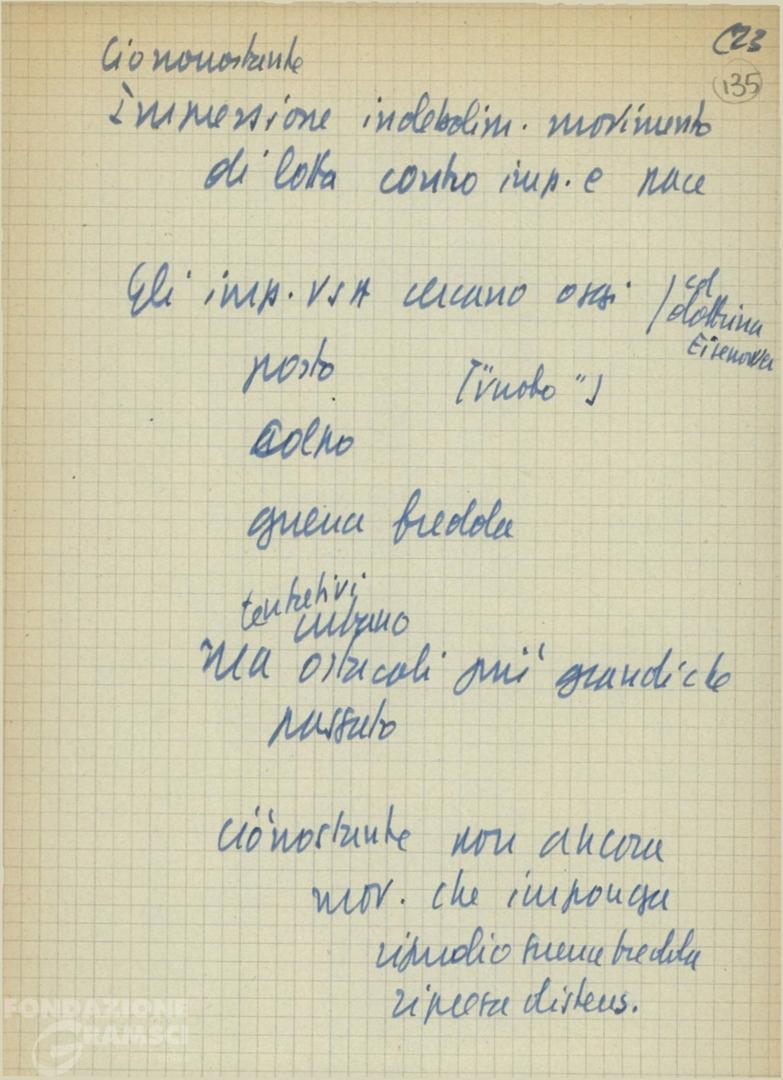 (23
135
Ciononostante
Impressione indebolim. movimento
di lotta contro imp. e pace
Gli imp. USA cercano oggi / col
dottrina
Eisenower
posto ["vuoto"]
colpo
guerra fredda
tentativi
urtano
Ma ostacoli più grandi che
passato
Ciónostante non ancora
mov. che imponga
ripudio guerra fredda
ripresa distens.
FONDAZIONE
GRAMSCI